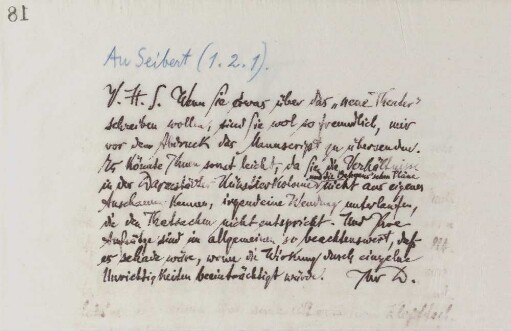 18
An Seibert (1. 2. 1).
V. H. S. Wenn Sie etwas über das „neue Theater“
schreiben wollen, sind Sie wol so freundlich, mir
vor dem Abdruck das Manuscript zu übersenden.
Es könnte Ihnen sonst leicht, da Sie die Verhältnisse
und die Behrens'schen Pläne
in der Darmstädter Künstlerkolonie nicht aus eigener
Anschauung kennen, irgendeine Wendung unterlaufen,
die den Thatsachen nicht entspricht. Und Ihre
Aufsätze sind im allgemeinen so beachtenswert, daß
es schade wäre, wenn die Wirkung durch einzelne
Unrichtigkeiten beeinträchtigt würde. Ihr D.